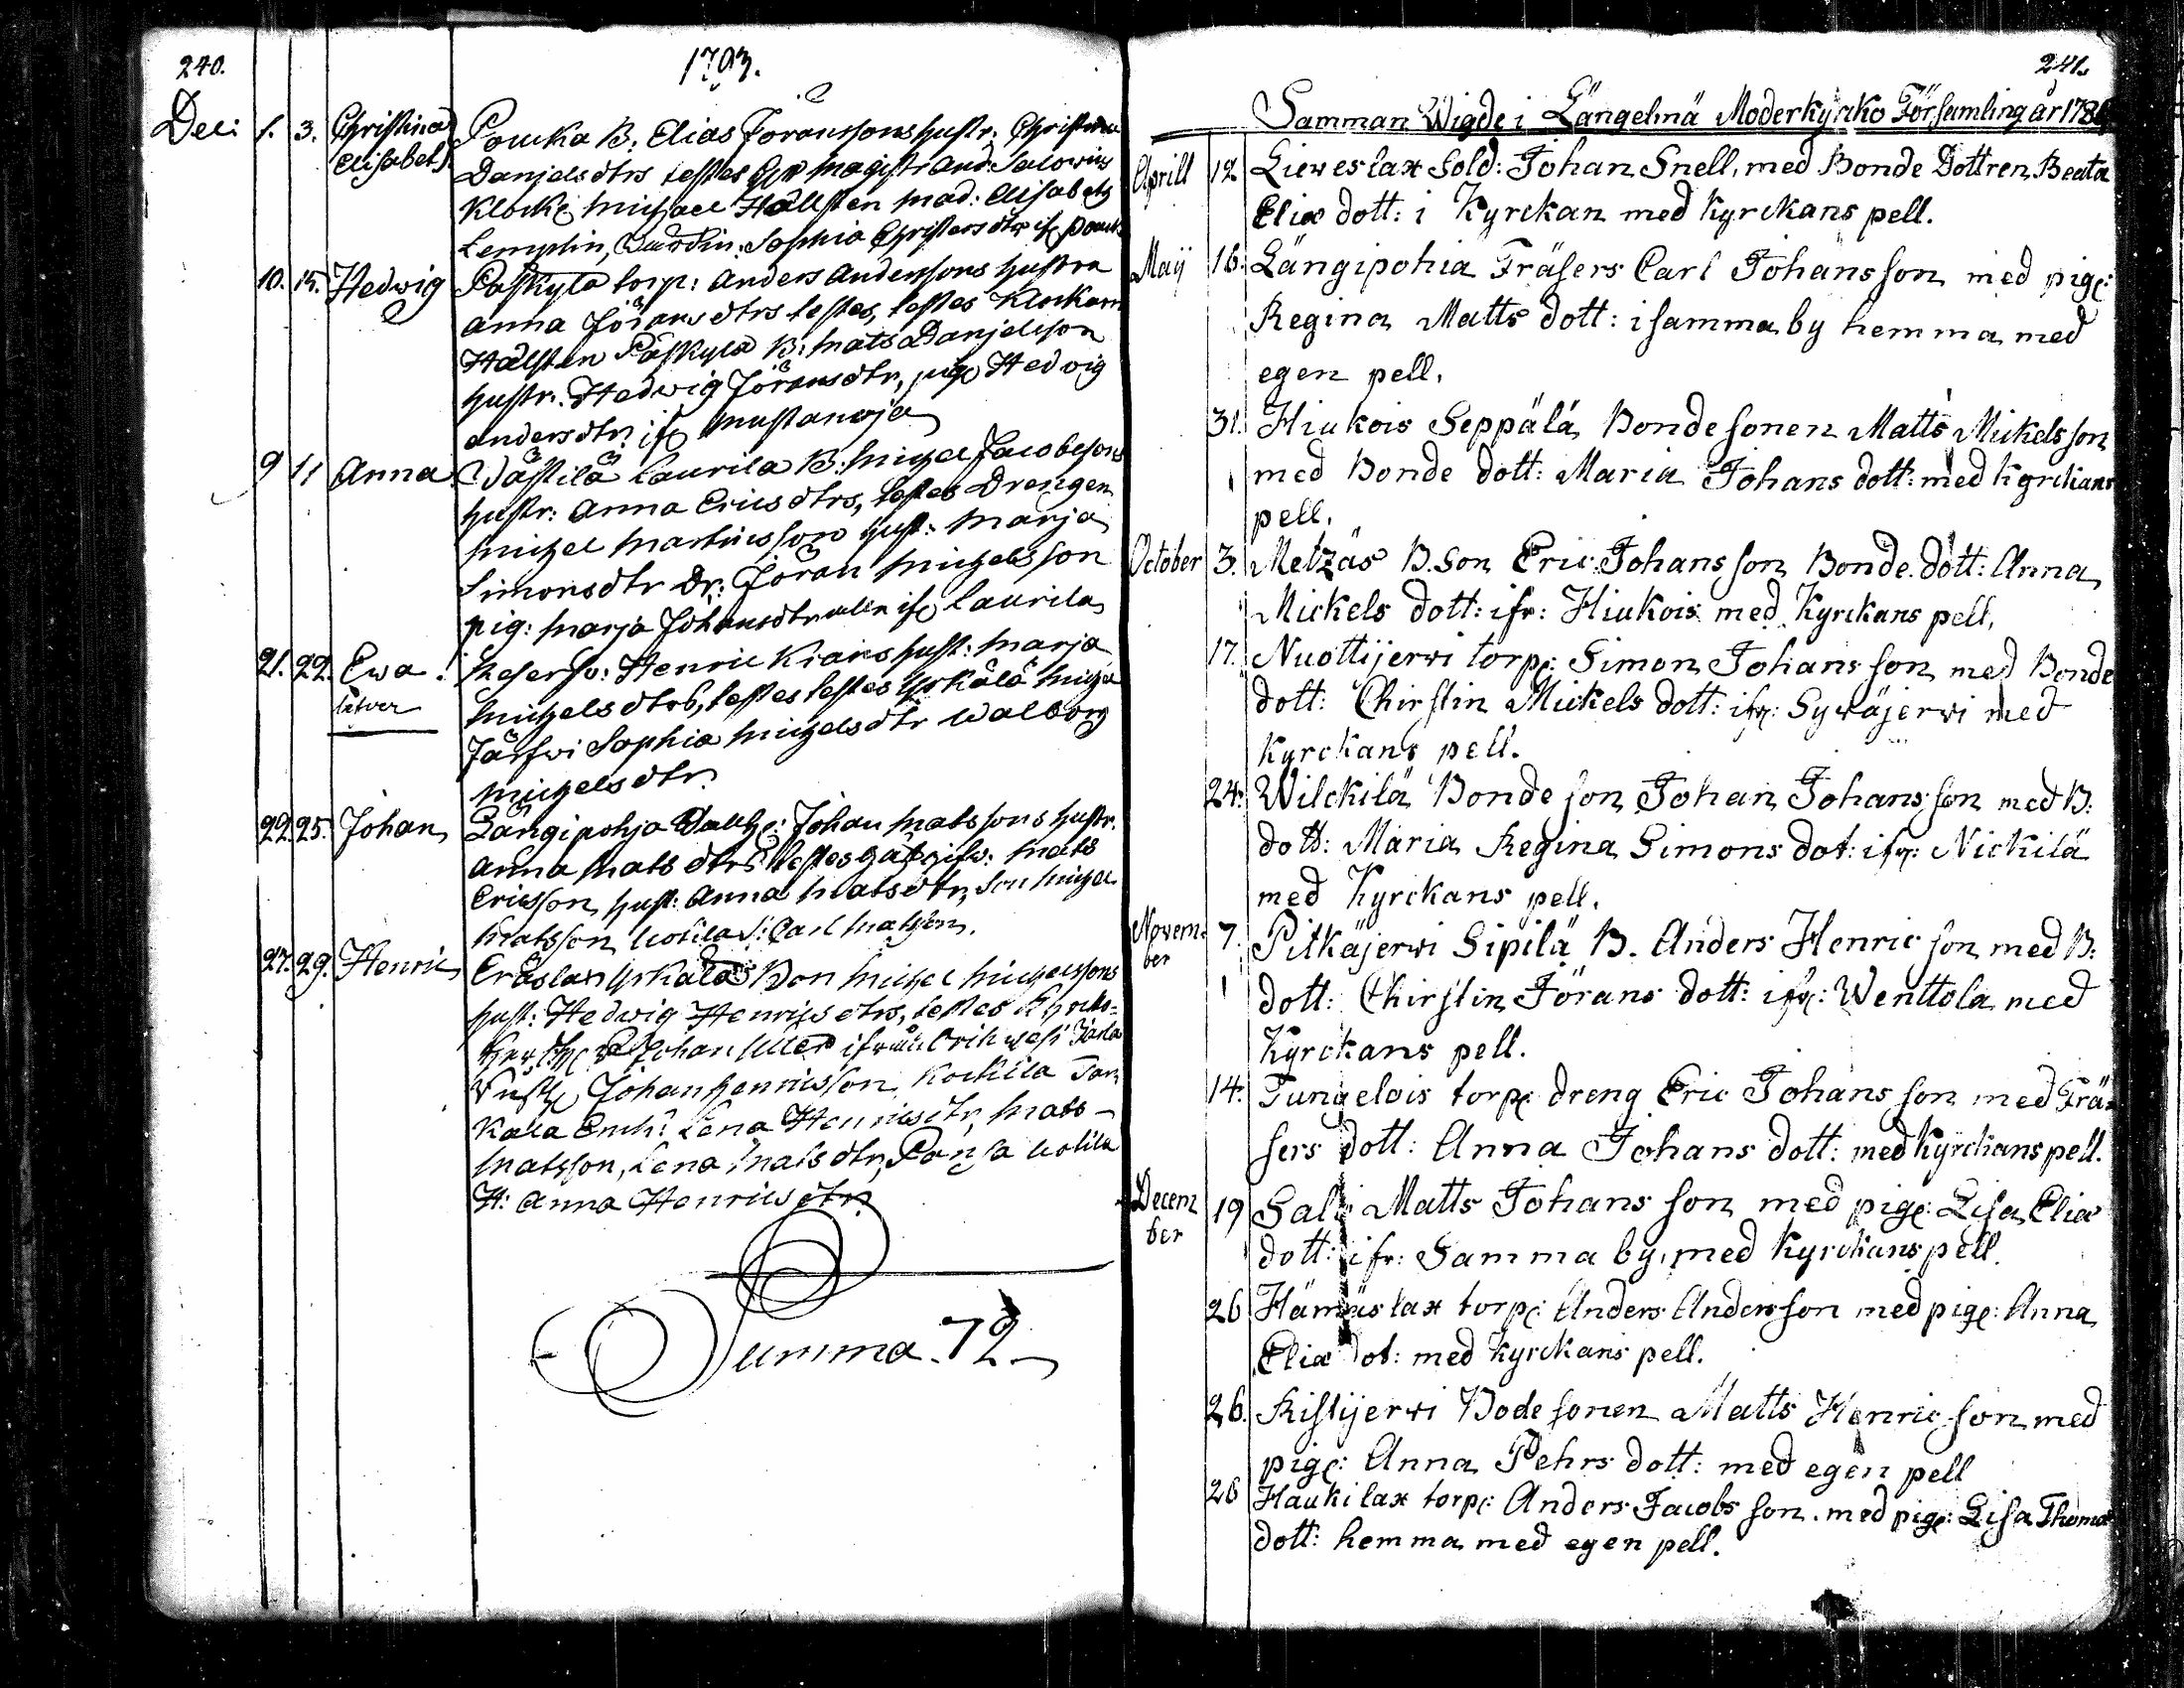 240.
1793.
Dec: 1. 3. Christina Pouka B. Elias Jöranssons hustr: Christina
Elisabet Danjelsdtrs testes H:r Magistr And: Salovius
Klock: Michael Hällsten Mad: Elisabeth
Lemplin, Sophia Christersdtr
10. 15. Hedwig Påhkyla torp: Anders Anderssons hustru
Anna Jöransdtrs testes, testes Klockaren
Hälsten Påhkyla B: Mats Danjelsson
hustr: Hedwig Jöransdtr, pig Hedvig
Andersdtr ifr Mustanoja
9 11 Anna Västilä Laurila B: Michel Jacobssons
hustr: Anna Ericsdtrs, testes Drengen
Michel Martinsson hust: Marja
Simonsdtr Dr: Jöran Michelsson
pig: Marja Johansdtr alla ifr Laurila
21. 22. Ewa Henric Kians hust: Marja
Michelsdtrs, testes testes Yrkälä Michel
Järfwi Sophia Michelsdtr Walborg
Michelsdtr
22. 25. Johan Längipohja Johan Matssons hustr.
Anna Mats dtrs testes Mats
Ericsson, hust: Anna Matsdtr, Son Michel
Matsson Uotila S: Carl Matsson.
27. 29. Henric Eräslax Yrkälä Bon Michel Michelssons
hust: Hedwig Henricsdtrs, testes
Johan ifrån Orihwesi
Johan Henricsson Kockila
Lena Henricsdtr, Mats
Matsson, Lena Matsdtr, Uotila
H: Anna Henricsdtr
Summa. 72
241.
Samman Wigde i Längelmä Moderkyrko Församling år 1784
Aprill 12 Lieweslax Sold: Johan Snell, med Bonde Dottren Beata
Eliæ dott: i Kyrckan med Kyrckans pell.
Maij 16. Längipohia Fräsers Carl Johans son med pig:
Regina Matts dott: i samma by hemma med
egen pell.
31. Hiukois Seppälä Bonde sonen Matts Mickels son
med Bonde dott: Maria Johans dott: med Kyrckans
pell.
October 3. Metzäs B. Son Eric Johans son Bonde dott: Anna
Mickels dott: ifr: Hiukois med Kyrckans pell.
17. Nuottijerwi torp: Simon Johans son med Bonde
dott: Chirstin Mickels dott: ifr: Sywäjerwi med
Kyrckans pell.
24. Wilckilä Bonde son Johan Johans son med B:
dott: Maria Regina Simons dot: ifr: Nickilä
med Kyrckans pell.
Novem 7. Pitkäjerwi Sipilä B. Anders Henric son med B:
ber dott: Chirstin Jörans dott: ifr: Wenttola med
Kyrckans pell.
14. Tungelois torp: dreng Eric Johans son med Frä=
sers dott: Anna Johans dott: med Kyrckans pell.
Decem 19 Sali Matts Johans son med pig: Lisa Eliæ
ber dott: ifr: Samma by, med Kyrckans pell.
26 Hämäslax torp: Anders Anders son med pig: Anna
Eliæ dot: med kyrckans pell.
26. Ristijerwi Bode sonen Matts Henric son med
pig: Anna Pehrs dott: med egen pell
26 Haukilax torp: Anders Jacobs son med pig: Lisa Thomæ
dott: hemma med egen pell.